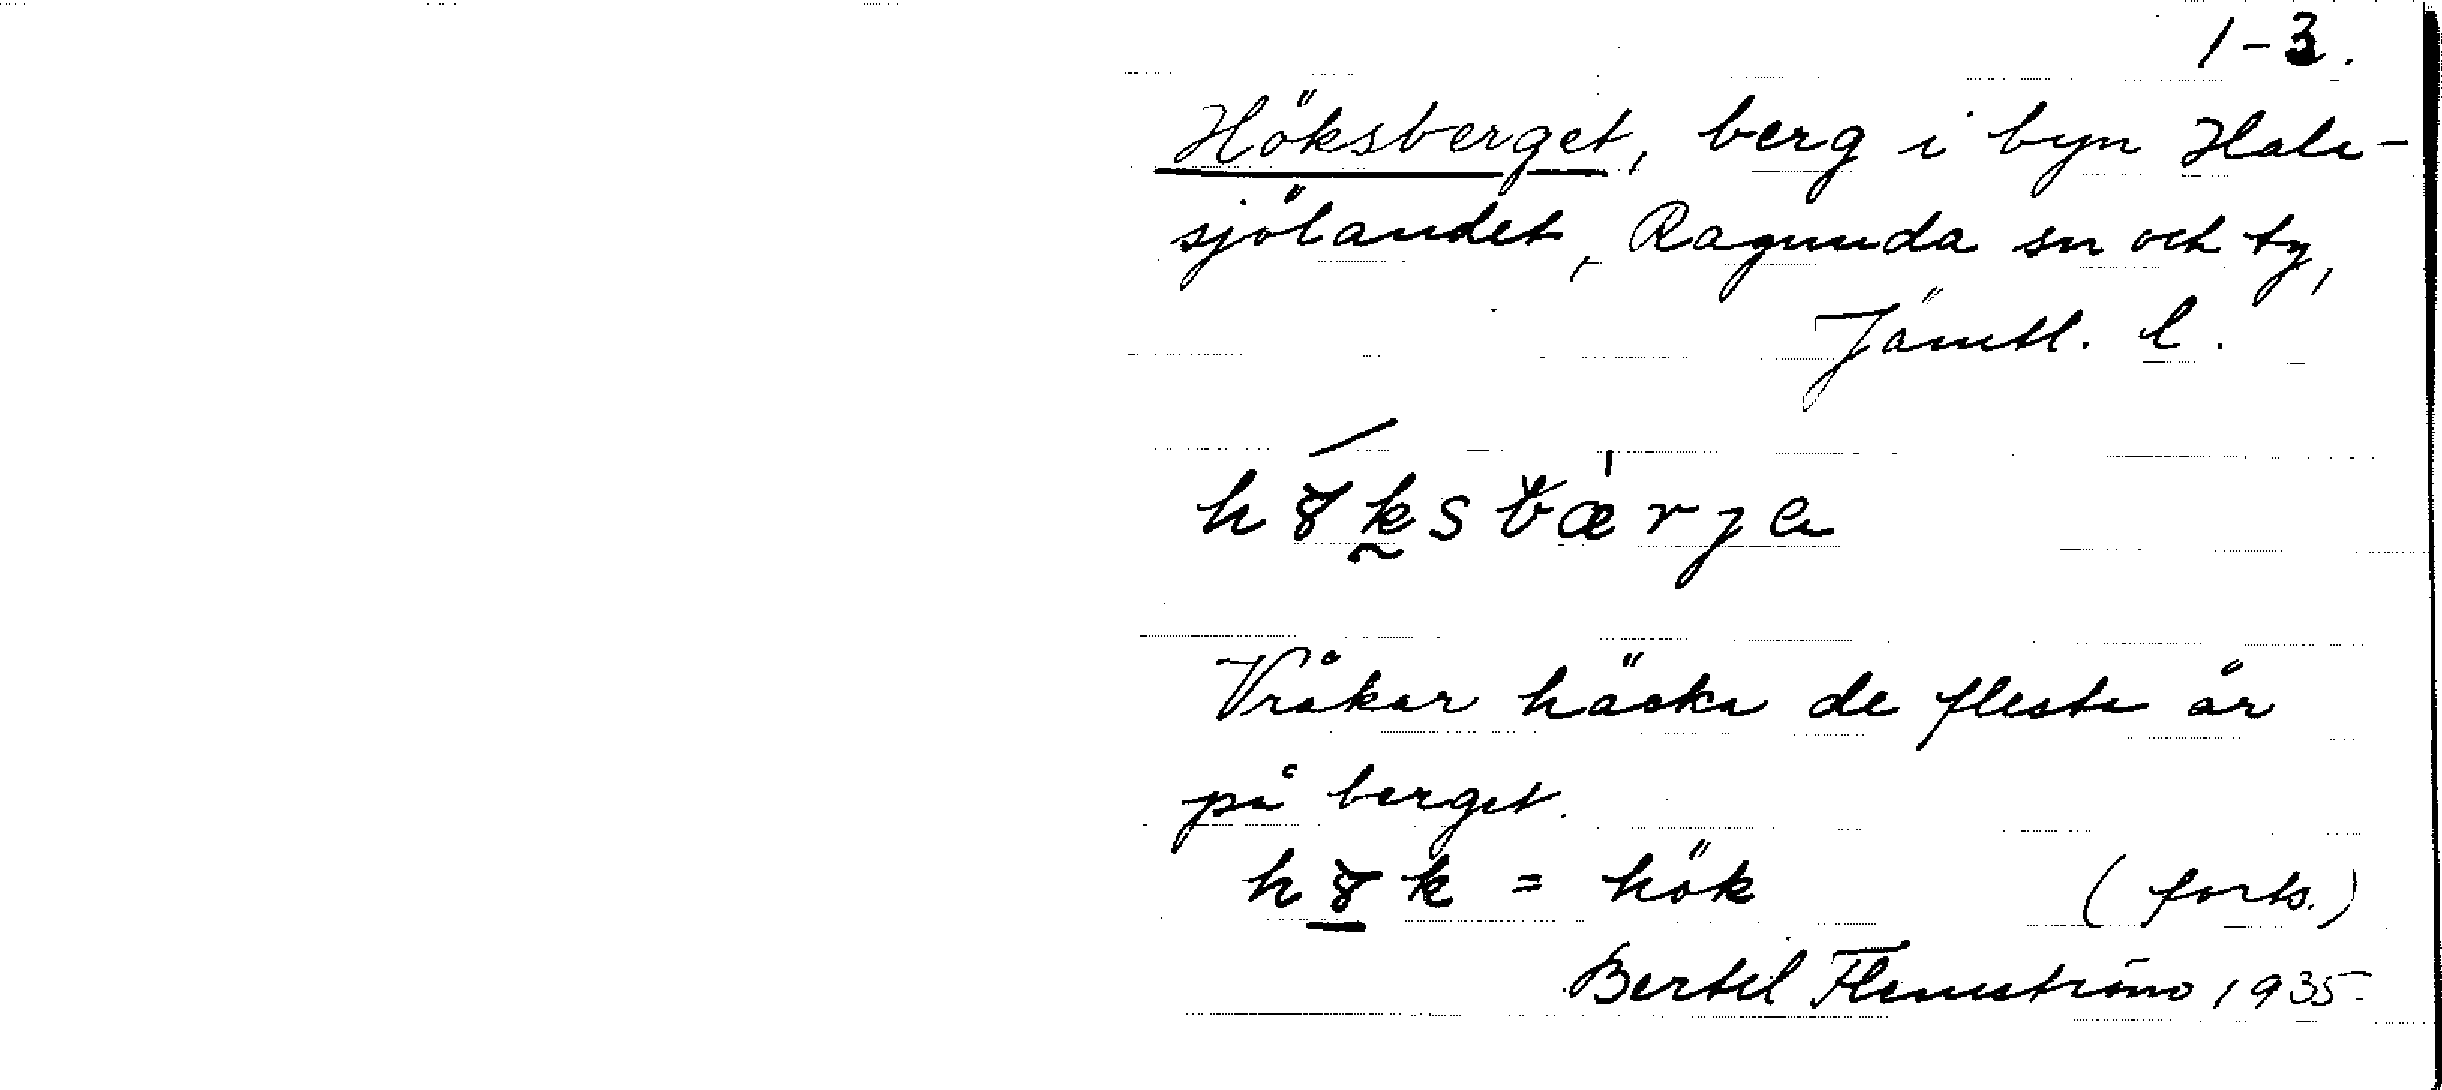 1-3.
Höksberget, berg i byn Hala-
sjölandet, Ragunda sn och tg,
Jämtl. l.
Vråkar häcka de flesta år
på berget.
= hök (forts.)
Bertil Flemström 1935.